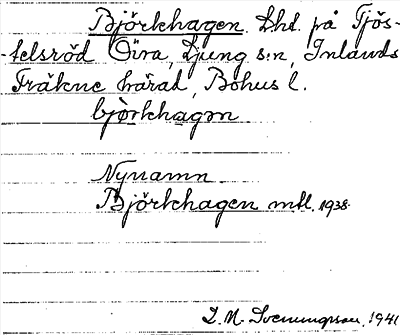 Björkhagen. Lht. på Tjös-
telsröd Övra, Ljung s:n, Inlands
Fräkne härad, Bohus l.
bjòrkhagɷn.
Nynamn
Björkhagen mtl. 1938.
1941